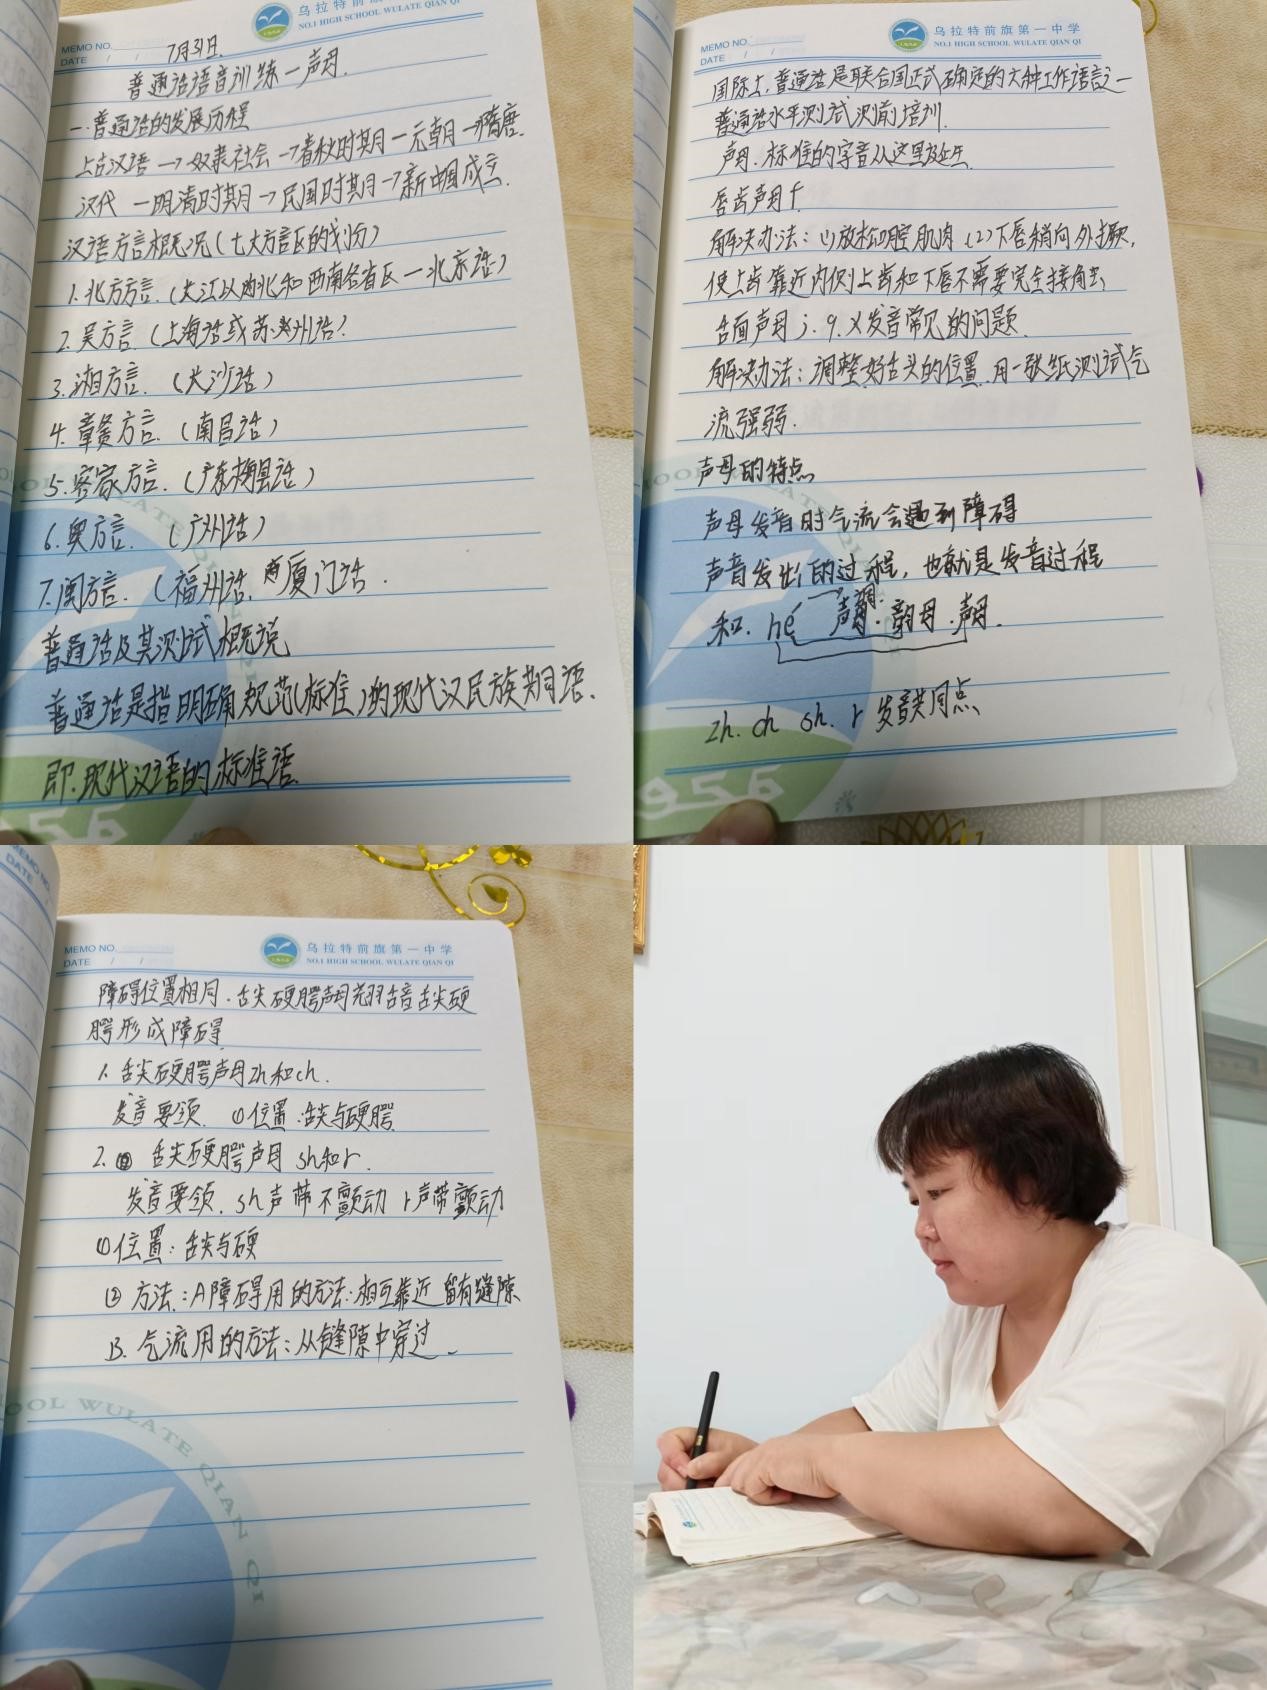 乌拉特前旗第一中学
NO.1 HIGH SCHOOL WULATE QIAN QI
MEMO NO.
DATE / /
7月31日.
普通话语音训练一声母.
一.普通话的发展历程
上古汉语→奴隶社会→春秋时期一元朝一隋唐.
汉代一明清时期→民国时期→新中国成立.
汉语方言概况(七大方言区的划分)
1.北方方言.(长江以内北和西南各省区一北京话)
2.吴方言(上海话或苏州话)
3.湘方言.(长沙话)
4.赣方言.(南昌话)
5.客家方言.(广东梅县话)
6.奥方言.(广州话)
7.闽方言.(福州话.厦门话.
普通话及其测试概说
普通话是指明确规范(标准)的现代汉民族共同语.
即.现代汉语的标准语.
956
MEMO NO.
DATE / /
乌拉特前旗第一中学
NO.1 HIGH SCHOOL WULATE QIAN QI
国际上,普通话是联合国正式确定的六种工作语言之一
普通话水平测试测前培训.
声母.标准的字音从这里诞生
唇齿声母f.
解决办法:(1)放松口腔肌肉(2)下唇稍向外撅,
使上齿靠近内侧上齿和下唇不需要完全接角虫
舌面声母j.q.x发音常见的问题.
解决办法:调整好舌头的位置.用一张纸测试气
流强弱.
声母的特点
声母发音时气流会遇到障碍
声音发出的过程,也就是发音过程
和. hé 声调.韵母.声母.
zh. ch sh. r 发音共同点
1956
MEMO NO.
DATE / /
乌拉特前旗第一中学
NO.1 HIGH SCHOOL WULATE QIAN QI
障碍位置相同.舌尖硬腭声母翘舌音舌尖硬
腭形成障碍.
1.舌尖硬腭声母zh和ch.
发音要领.①位置:舌尖与硬腭
2.舌尖硬腭声母sh和r.
发音要领.sh声带不颤动r声带颤动
①位置:舌尖与硬
②方法:A障碍用的方法:相互靠近留有缝隙
B.气流用的方法:从缝隙中穿过.
OOL WULATE QIAN QI